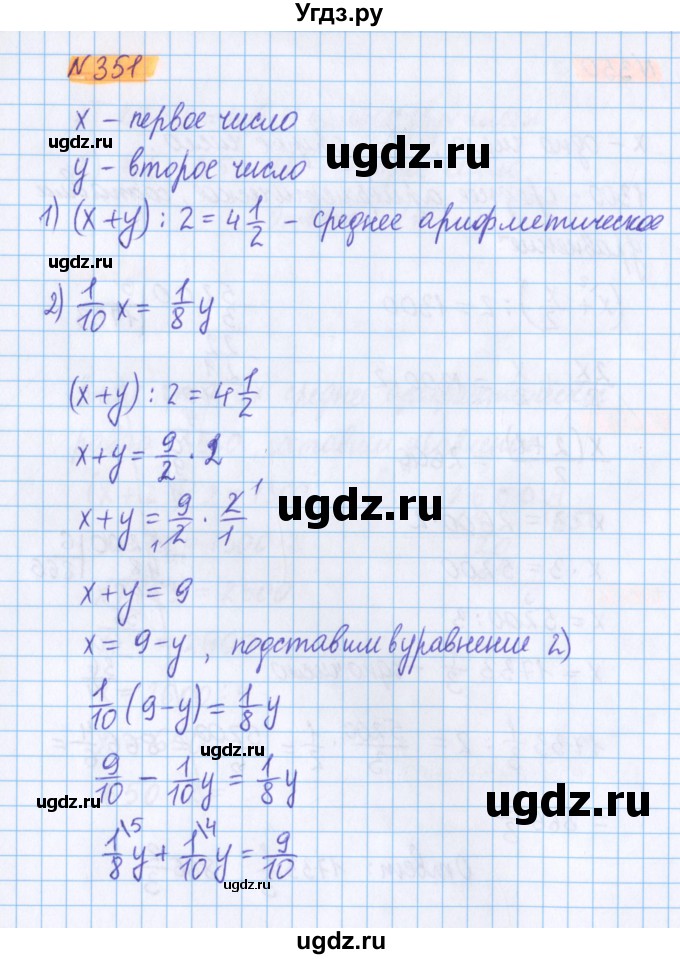 Угдз.ру
№351
x – первое число
ugdz.ru
ugdz.ru
y – второе число
1) (x+y) : 2 = 4 1/2 – среднее арифметическое
ugdz.ru
2) 1/10 x = 1/8 y
(x+y) : 2 = 4 1/2
x+y = 9/2 · 2
x+y = 9/2 · 2/1
1 1
ugdz.ru
x+y = 9
x = 9–y , подставим в уравнение 2)
1/10 (9–y) = 1/8 y
ugdz.ru
9/10 – 1/10 y = 1/8 y
ugdz.ru
ugdz.ru
1\5/8 y + 1\4/10 y = 9/10
ugdz.ru
ugdz.ru